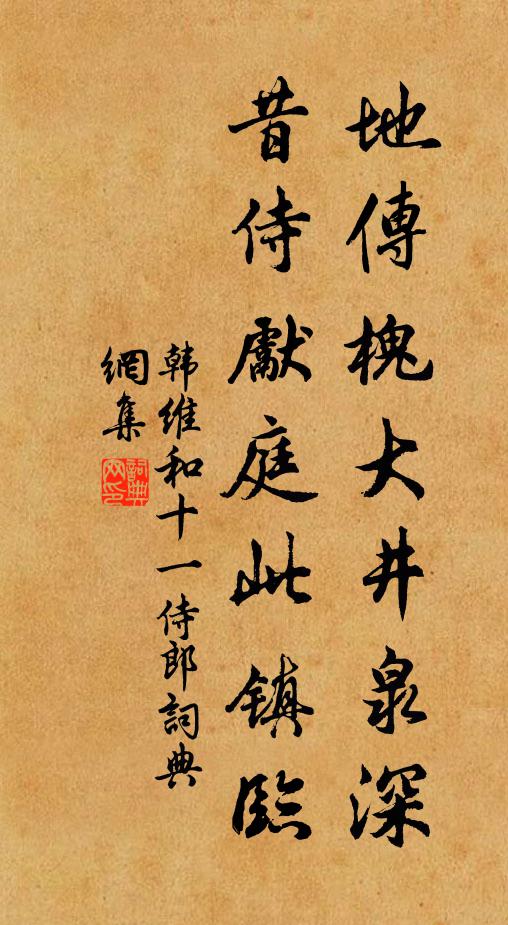 地傳槐大井泉深
昔侍獻庭此鎮臨
韩維和十一侍郎詞典
網集
詞典網印